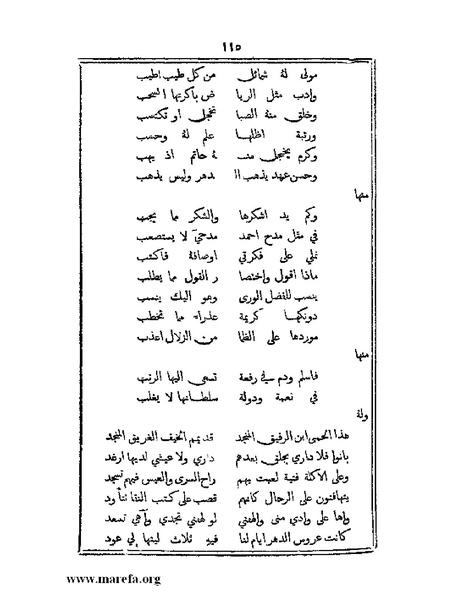 ١١٥
مولى لهُ شمائل من كل طيب اطيب
وادب مثل الريا ض باكرتها السحب
وخلق منهُ الصبا تخجل او تكتسب
ورتبة اظلها علم لهُ وحسب
وكرم يخجل منـ ـهُ حاتم اذ يهب
وحسن عهد يذهب الـ ـدهر وليس يذهب
منها
وكم يد اشكرها والشكر مما يجب
في مثل مدح احمد مدحيَ لا يستصعب
تملي على فكرتي اوصافهُ فاكتب
ماذا اقول واختصا ر القول مما يطلب
ينسب للفضل الورى وهو اليك ينسب
دونكها كريمة عذراء مما تخطب
موردها على الظما من الزلال اعذب
منها
فاسلم ودم في رفعة تسعى اليها الرتب
في نعمة ودولة سلطانها لا يغلب
ولهُ
هذا الحمى ابن الرفيق المنجد قديمهم الخيف الغريق المنجد
بانوا فلا داري بجلق بعدهم داري ولا عيشي لديها ارغد
وعلى الاكلة فتية لعبت بهم راح السرى والعيس فيهم تسجد
يتهافتون على الرحال كانهم قصب على كتب النقا تتأود
واها على وادي منى والهفتي لو لهفتي تجدي وآهي تسعد
كانت عروس الدهر ايام لنا فيهِ ثلاث ليتها لي عود
www.marefa.org